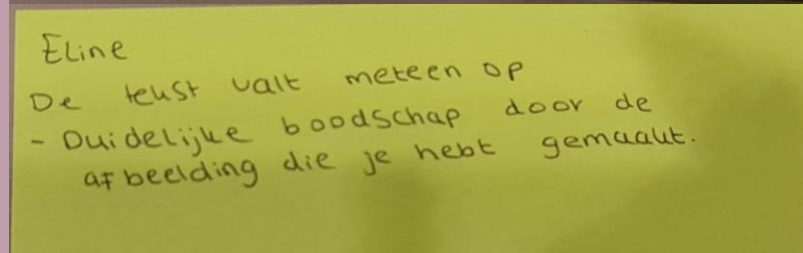 Eline
De tekst valt meteen op
- Duidelijke boodschap door de
afbeelding die je hebt gemaakt.